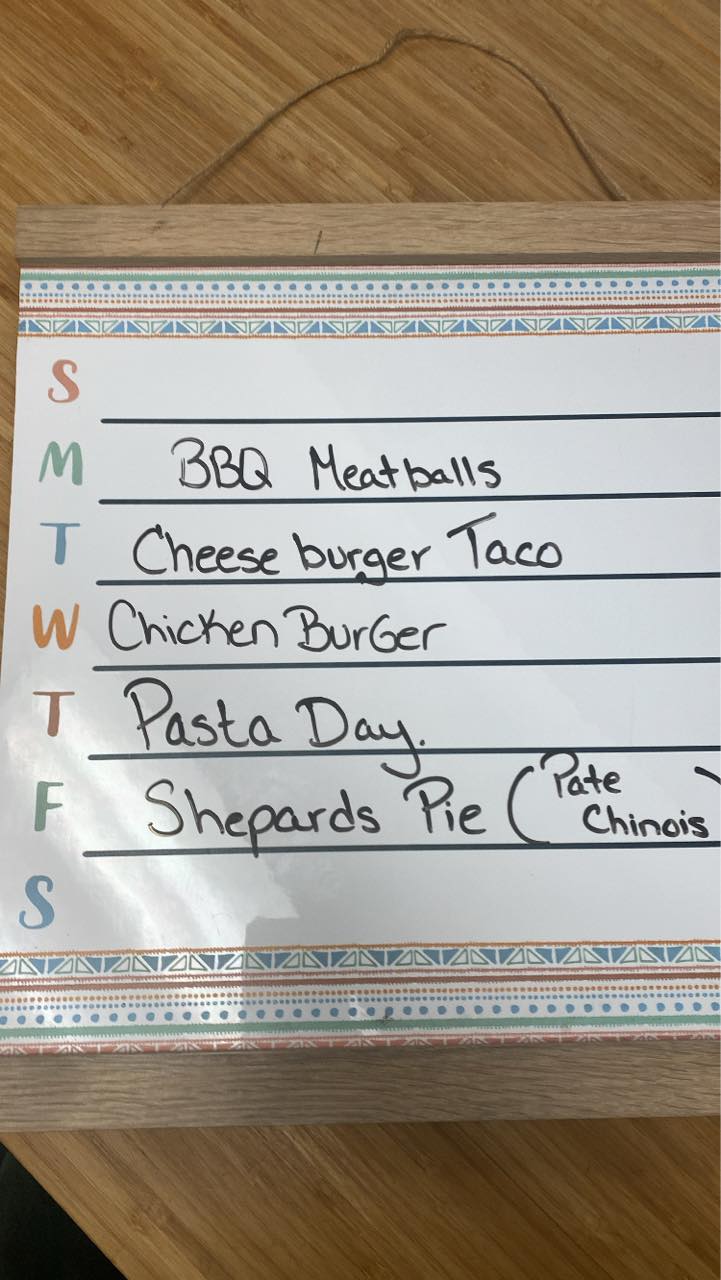 S
M BBQ Meatballs
T Cheese burger Taco
W Chicken BurGer
T Pasta Day.
F Shepards Pie (Pate
Chinois)
S